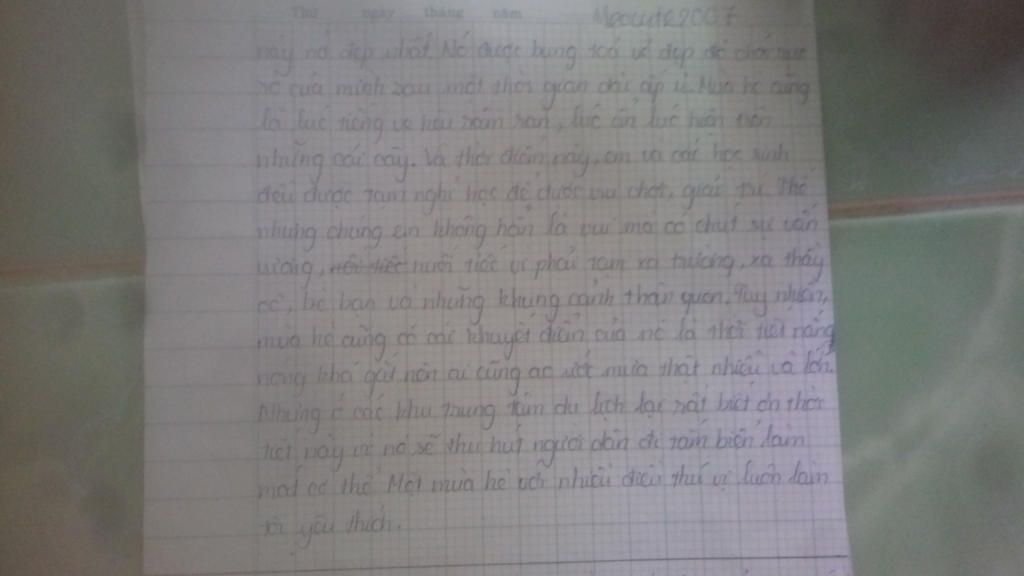 Thứ ngày tháng năm Meocute2007
này nó đẹp nhất. Nó được bung toả vẻ đẹp để chói rực
rỡ của mình sau một thời gian dài ấp ủ. Mùa hè cũng
là lúc tiếng ve kêu râm ran, lúc ẩn lúc hiện trên
những cái cây. Và thời điểm này, em và các học sinh
đều được tạm nghỉ học để được vui chơi, giải trí. Thế
nhưng chúng em không hẳn là vui mà có chút sự vấn
vương, nuối tiếc vì phải tạm xa trường, xa thầy
cô, bè bạn và những khung cảnh thân quen. Tuy nhiên,
mùa hè cũng có cái khuyết điểm của nó là thời tiết nắng
nóng khá gắt nên ai cũng ao ước mưa thật nhiều và lớn.
Nhưng ở các khu trung tâm du lịch lại rất biết ơn thời
tiết này vì nó sẽ thu hút người dân đi tắm biển làm
mát cơ thể. Một mùa hè với nhiều điều thú vị luôn làm
tôi yêu thích.